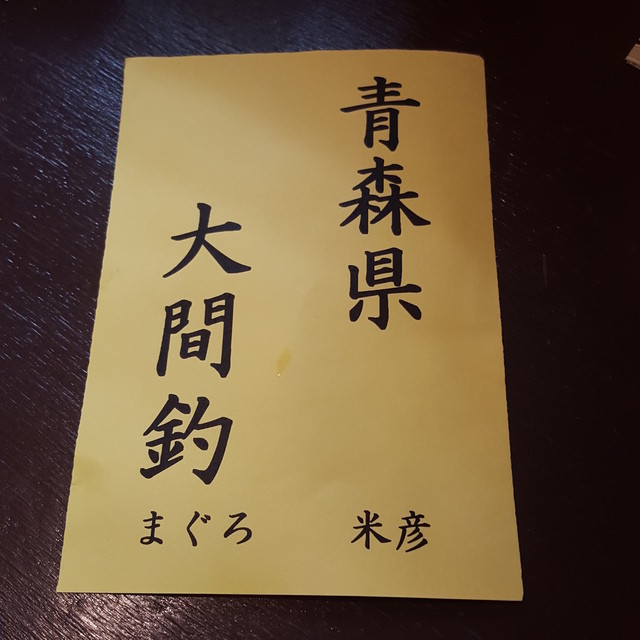 青森県
大間釣
まぐろ
米彦